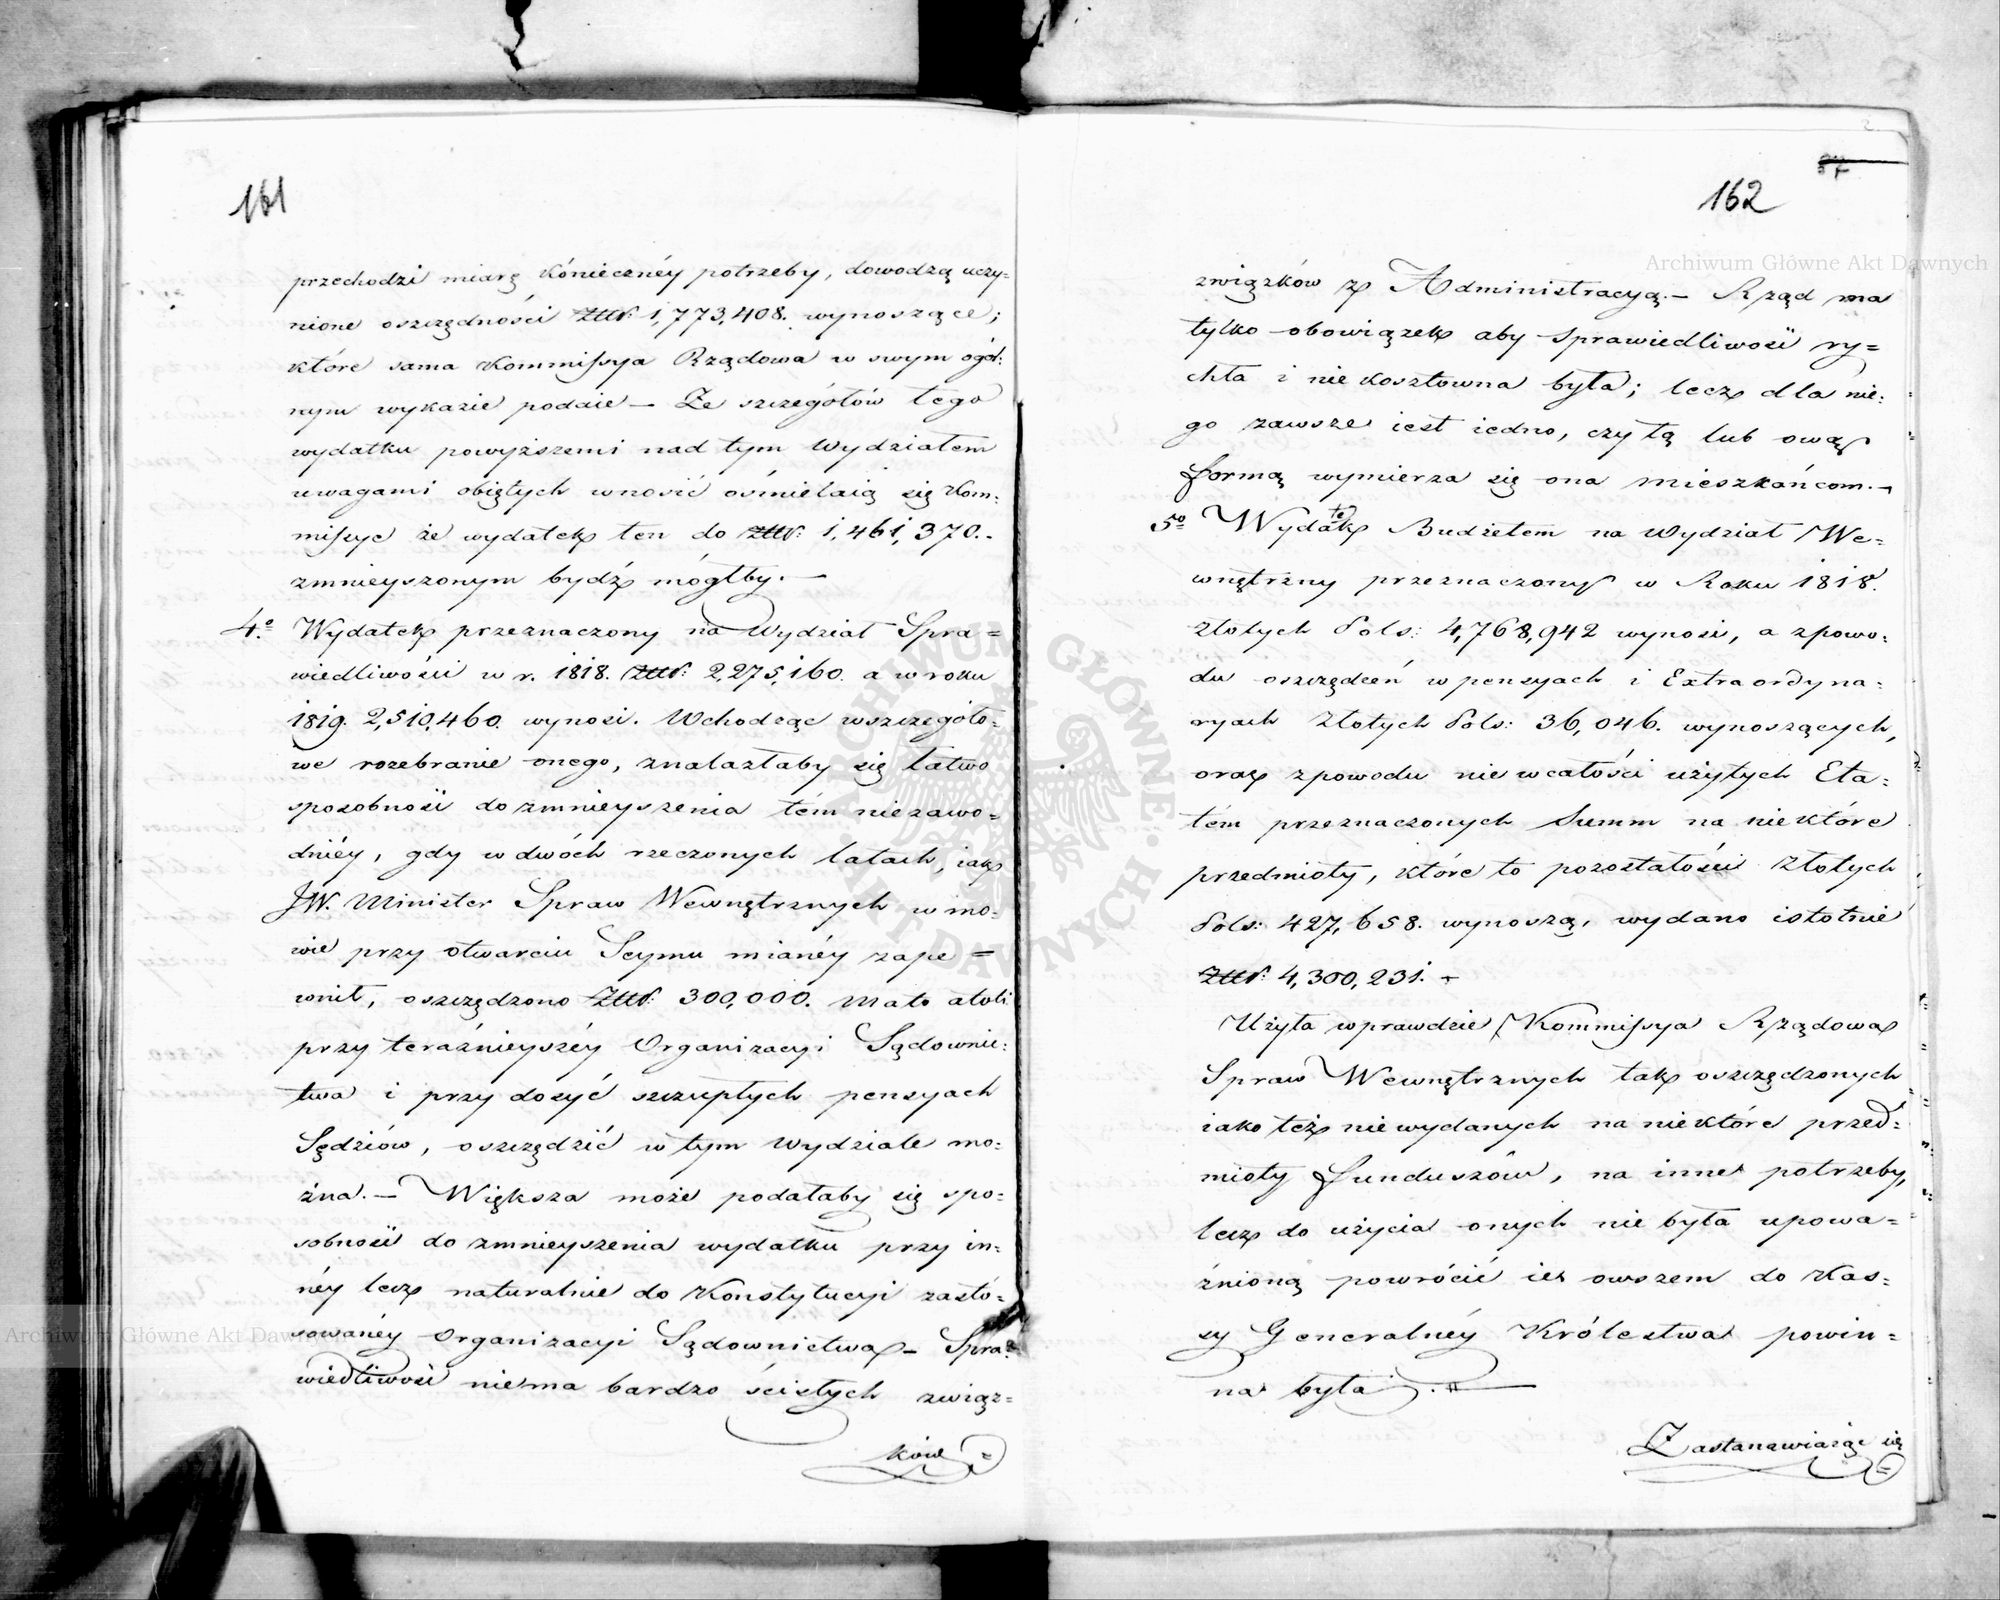 161
przechodzi miarę kónieczнéy potrzeby, dowodzą uczy=
nione oszczędności Złtt: 1,773,408. wynoszące;
które sama Kommissya Rządowa w swym ogól:
nym wykazie podaie – Ze szczegółów tego
wydatku powyższemi nad tym Wydziałem
uwagami obiętych wnosić ośmielaią się Kom:
missye że wydatek ten do złtt: 1,461,370.-
zmnieyszonym bydź mógłby. —
4.° Wydatek przeznaczony na Wydział Spra=
wiedliwości w r. 1818. złtt: 2,275,160. a w roku
1819. 2,510,460. wynosi. Wchodząc w szczegóło=
we rozebranie onego, znalazłaby się łatwo
sposobność do zmnieyszenia tém niezawo=
dniéy, gdy w dwóch rzeczonych latach, iak
JW. Minister Spraw Wewnętrznych w mo:
wie przy otwarciu Seymu mianéy zape =
wnił, oszczędzono Złtt: 300,000. Mało atoli
przy teraźnieyszéy Organizacyi Sądownic:
twa i przy dosyć szczupłych pensyach
Sędziów, oszczędzić w tym Wydziale mo:
żna. — Większa może podałaby się spo:
sobność do zmnieyszenia wydatku przy in:
néy lecz naturalnie do Konstytucyi zasto:
sowanéy Organizacyi Sądownictwa – Spra=
wiedliwość niema bardzo ścisłych związ=
ków =
87
162
związków z Administracyą. – Rząd ma
tylko obowiązek aby sprawiedliwość ry=
chła i niekosztowna była; lecz dla nie:
go zawsze iest iedno, czy tą lub ową
formą wymierza się ona mieszkańcom. –
5° Wydatek Budżetem na Wydział We=
wnętrzny przeznaczony w Roku 1818.
złotych Pols: 4,768,942 wynosi, a z powo:
du oszczędzeń w pensyach i Extraordyna:
ryach Złotych Pols: 36,046. wynoszących,
oraz z powodu niewcałości użytych Eta:
tém przeznaczonych Summ na niektóre
przedmioty, które to pozostałości Złotych
Pols: 427,658. wynoszą, wydano istotnie
Złtt: 4,300,231. –
Użyła wprawdzie Kommissya Rządowa
Spraw Wewnętrznych tak oszczędzonych
iako też niewydanych na niektóre przed=
mioty Funduszów, na inne potrzeby,
lecz do użycia onych nie była upowa=
żnioną powrócić ie owszem do Kas=
sy Generalnéy Królestwa powin=
na była. —
Zastanawiaiąc się =
Archiwum Główne Akt Dawnych
Archiwum Główne Akt Dawnych
ARCHIWUM GŁÓWNE AKT DAWNYCH